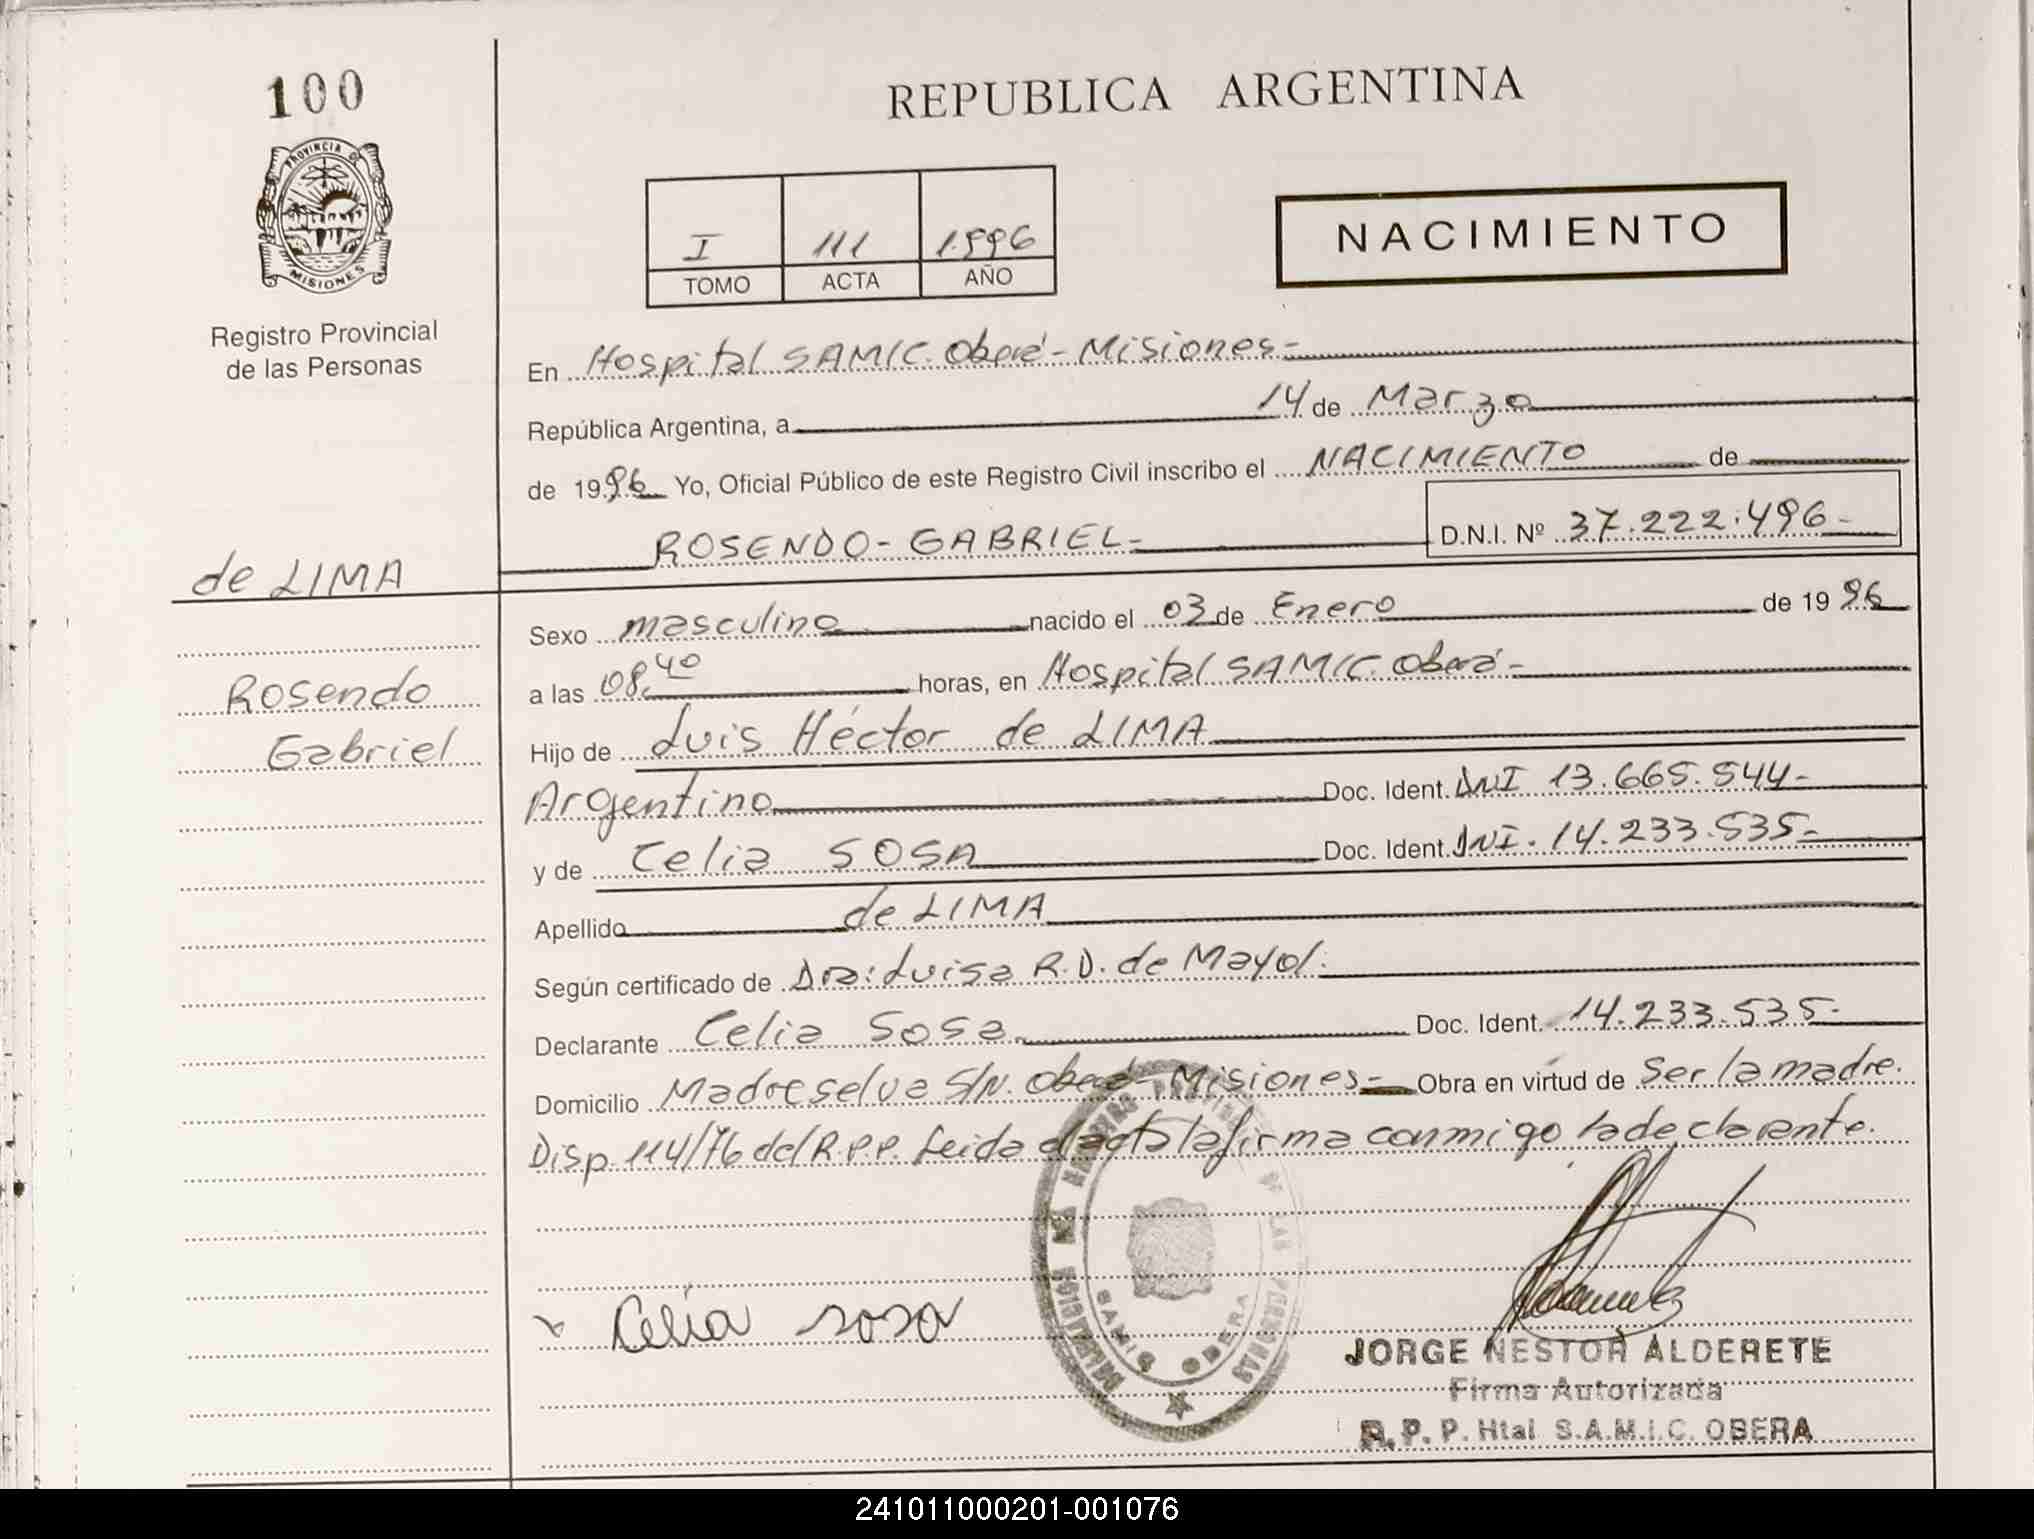 100
PROVINCIA DE
MISIONES
Registro Provincial
de las Personas
REPUBLICA ARGENTINA
I 111 1.996
TOMO ACTA AÑO
NACIMIENTO
En Hospital SAMIC. Oberá - Misiones -
República Argentina, a 14 de Marzo
de 1996 Yo, Oficial Público de este Registro Civil inscribo el NACIMIENTO de
ROSENDO - GABRIEL - D.N.I. Nº 37.222.496 -
de LIMA
Rosendo
Gabriel
Sexo masculino nacido el 03 de Enero de 1996
a las 08.40 horas, en Hospital SAMIC. Oberá -
Hijo de Luis Héctor de LIMA
Argentino Doc. Ident. DNI 13.665.544 -
y de Celia SOSA Doc. Ident. DNI. 14.233.535 -
Apellido de LIMA
Según certificado de Dra: Luisa R.D. de Mayol.
Declarante Celia Sosa Doc. Ident. 14.233.535 -
Domicilio Madreselva S/N. Oberá - Misiones - Obra en virtud de Ser la madre.
Disp. 114/76 del R.P.P. Leida el acta la firma conmigo la declarante.
Celia sosa
DE LAS PERSONAS
SAMIC OBERA
JORGE NESTOR ALDERETE
Firma Autorizada
R. P. P. Htal S.A.M.I.C. OBERA
241011000201-001076